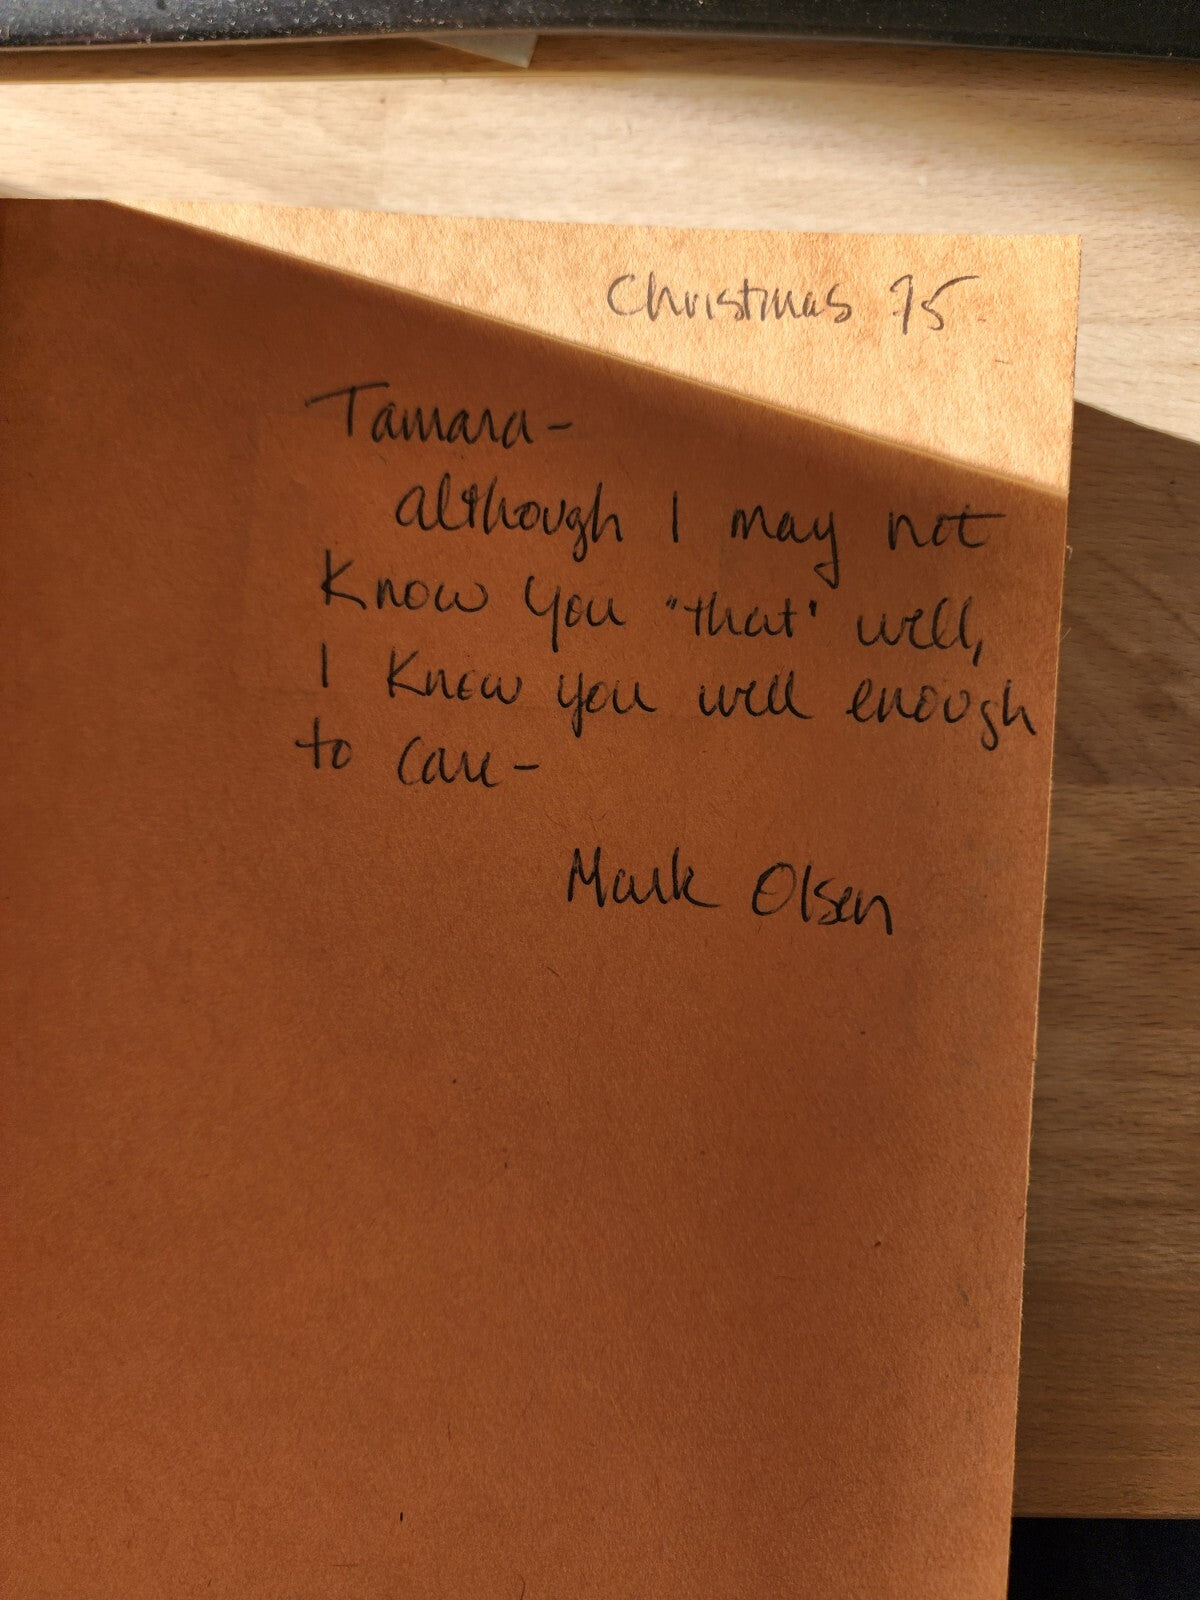 Christmas 75
Tamara-
although I may not
Know you "that" well,
I Know you well enough
to care-
Mark Olsen